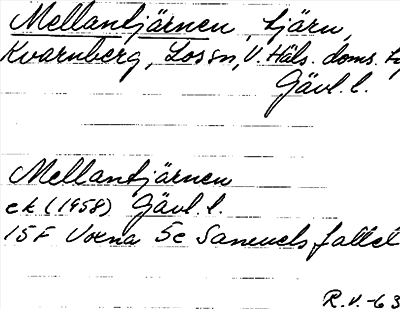 Mellantjärnen, tjärn,
Kvarnberg, Lossn, V. Häls. doms.
Gävl. l.
Mellantjärnen
ek (1958) Gävl. l.
15F Voxna 5e Samuelsfallet
R.V.-63